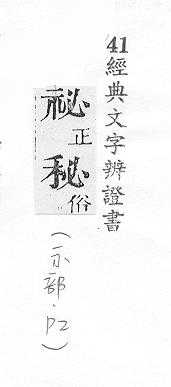 41經典文字辨證書
祕正秘俗
(示部.P2)